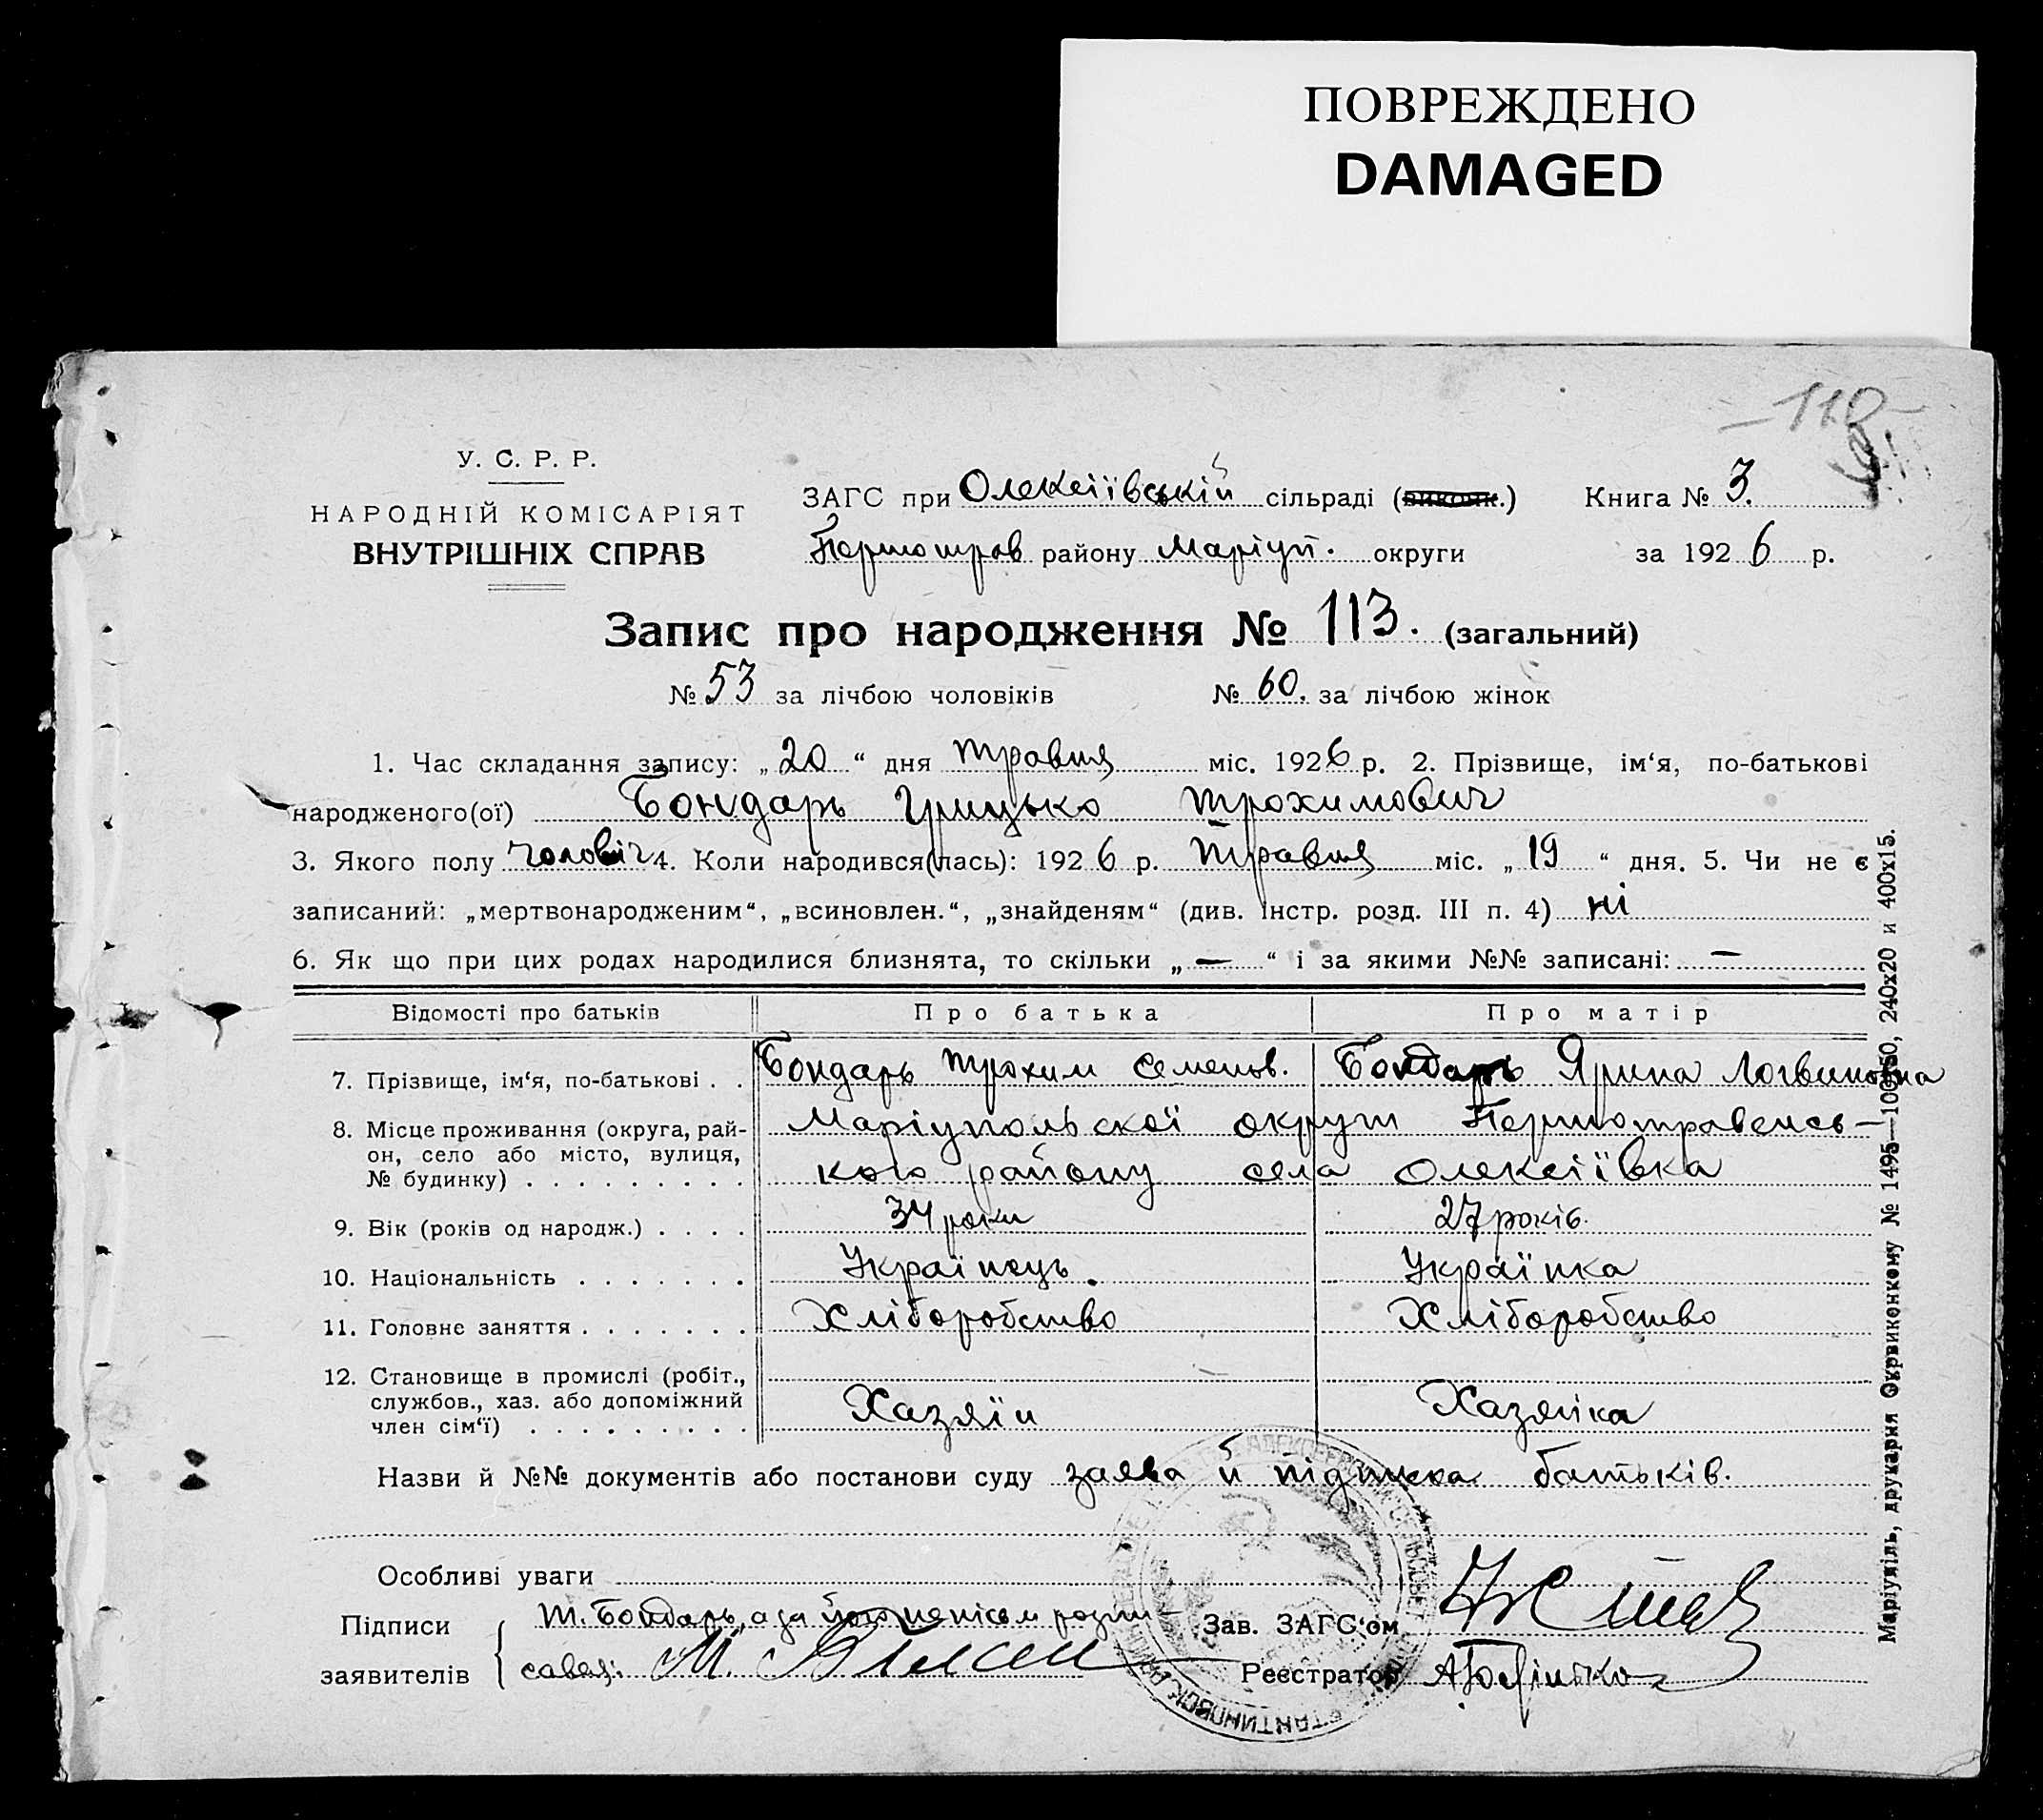 ПОВРЕЖДЕНО
DAMAGED
110
У. С. Р. Р.
НАРОДНІЙ КОМІСАРІЯТ
ВНУТРІШНІХ СПРАВ
ЗАГС при Олексіївській сільраді (викон.) Книга № 3.
Першотрав району Маріуп. округи за 1926 р.
Запис про народження № 113. (загальний)
№ 53 за лічбою чоловіків № 60. за лічбою жінок
1. Час складання запису: „20“ дня травня міс. 1926 р. 2. Прізвище, ім‘я, по-батькові
народженого(ої) Бондарь Грицько Трохимович
3. Якого полу чоловіч 4. Коли народився(лась): 1926 р. Травня міс. „19“ дня. 5. Чи не є
записаний: „мертвонародженим“, „всиновлен.“, „знайденям“ (див. інстр. розд. III п. 4) ні
6. Як що при цих родах народилися близнята, то скільки „—“ і за якими №№ записані: —
Відомості про батьків Про батька Про матір
7. Прізвище, ім‘я, по-батькові . . Бондарь Трохим Семенов. Бондарь Ярина Логвиновна
8. Місце проживання (округа, рай- Маріупольскої округи Першотравенсь-
он, село або місто, вулиця,
№ будинку) . . . . . . . . . кого району села Олексіївка
9. Вік (років од народж.) . . . . 34 роки 27 років.
10. Національність . . . . . . . Українець. Українка
11. Головне заняття . . . . . . . Хліборобство Хліборобство
12. Становище в промислі (робіт.,
службов., хаз. або допоміжний Хазяїн Хазяйка
член сім‘ї) . . . . . . . . .
Назви й №№ документів або постанови суду заява й підписка батьків.
Особливі уваги
Підписи Т. Бондарь, а за його непісьм розпи- Зав. ЗАГС‘ом
заявителів савсь: М. Реєстратор
Маріупіль, друкарня Окрвиконкому № 1495—100/50, 240x20 и 400x15.